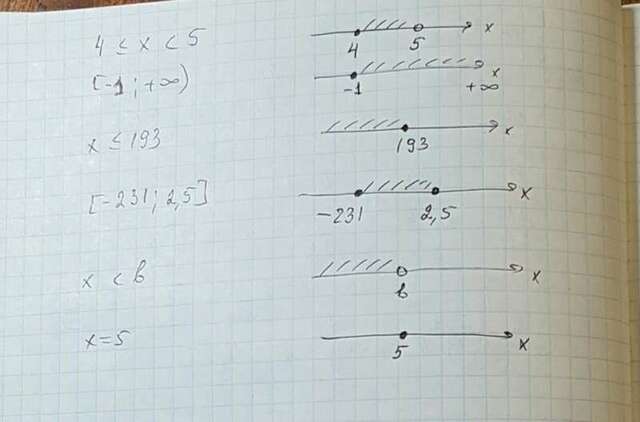 4 ≤ x < 5
x
4 5
[-1; +∞)
x
-1 +∞
x ≤ 193
x
193
[-231; 2,5]
x
-231 2,5
x < b
x
b
x = 5
x
5